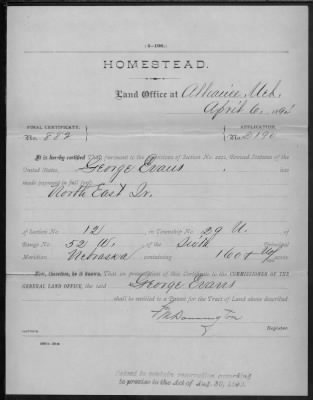 HOMESTEAD.
Land Office at Alliance, Neb.
April 6, 189
FINAL CERTIFICATE, APPLICATION,
No. 882 No. 2190
It is hereby certified That, pursuant to the provisions of Section No. 2291, Revised Statutes of the
United States, George Evans
has made payment in full for
North East Qr.
of Section No. 12 in Township No. 29 N.
Range No. 52 W. of the Sixth Principal
Meridian Nebraska containing 160 acres.
Now, therefore, be it known, That on presentation of this Certificate to the COMMISSIONER OF THE
GENERAL LAND OFFICE, the said George Evans
shall be entitled to a Patent for the Tract of Land above described.
Register.
Patent to contain reservation according
to proviso to the Act of Aug. 30, 1890.